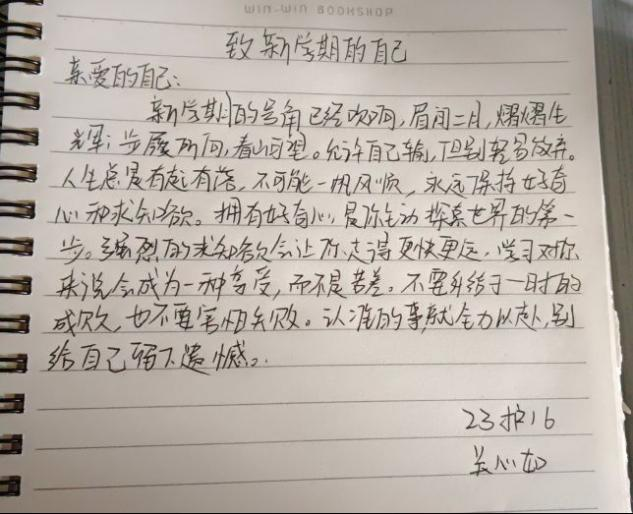 WIN-WIN BOOKSHOP
致新学期的自己
亲爱的自己:
新学期的号角已经吹响,眉间二月,熠熠生
辉;步履所向,春山可望。允许自己输,但别轻易放弃。
人生总是有起有落,不可能一帆风顺,永远保持好奇
心和求知欲。拥有好奇心,是你主动探索世界的第一
步。强烈的求知欲会让你走得更快更远,学习对你
来说会成为一种享受,而不是苦差。不要纠结于一时的
成败,也不要害怕失败。认准的事就全力以赴,别
给自己留下遗憾。
23护16
关心如